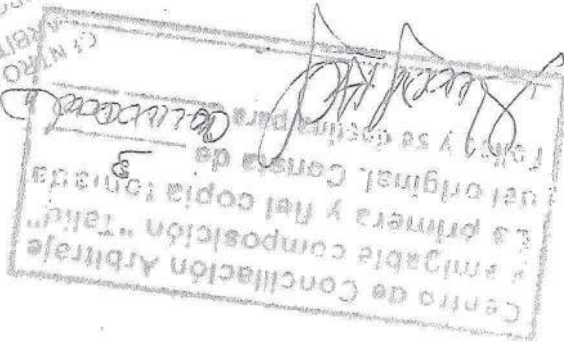 Centro de Conciliación Arbitraje
y amigable composición "Talid"
primera y fiel copia tomada
del original. Consta de 3
Folios y se destina para
CENTRO
ARBITR